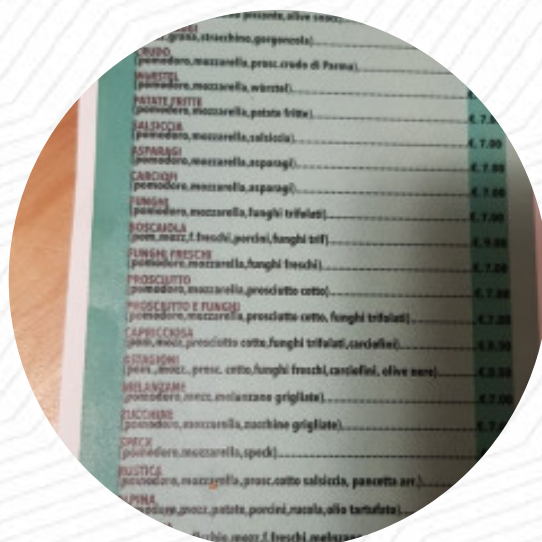 piccante,olive
grana,stracchino,gorgonzola)
CRUDO
(pomodoro,mozzarella,prosc.crudo di Parma)
WURSTEL
(pomodoro,mozzarella,würstel)
PATATE FRITTE
(pomodoro,mozzarella,patate fritte) €. 7.
SALSICCIA
(pomodoro,mozzarella,salsiccia) €. 7.00
ASPARAGI
(pomodoro,mozzarella,asparagi) €. 7.00
CARCIOFI
(pomodoro,mozzarella,asparagi) €. 7.00
FUNGHI
(pomodoro,mozzarella,funghi trifolati) €. 7.00
BOSCAIOLA
(pom,mozz,f.freschi,porcini,funghi trif) €. 9.00
FUNGHI FRESCHI
(pomodoro,mozzarella,funghi freschi) €. 7.00
PROSCIUTTO
(pomodoro,mozzarella,prosciutto cotto) €. 7.00
PROSCIUTTO E FUNGHI
(pomodoro,mozzarella,prosciutto cotto, funghi trifolati)
CAPRICCIOSA
(pom,mozz,prosciutto cotto,funghi trifolati,carciofini)
4STAGIONI
(pom.,mozz., prosc. cotto,funghi freschi,carciofini, olive nere)
MELANZANE
(pomodoro,mozz,melanzane grigliate)
ZUCCHINE
(pomodoro,mozzarella,zucchine grigliate)
SPECK
(pomodoro,mozzarella,speck)
RUSTICA
(pomodoro,mozzarella,prosc.cotto salsiccia, pancetta arr.)
ALPINA
(pomodoro,mozz,patate,porcini,rucola,olio tartufato)
mozz,f.freschi,melanzane